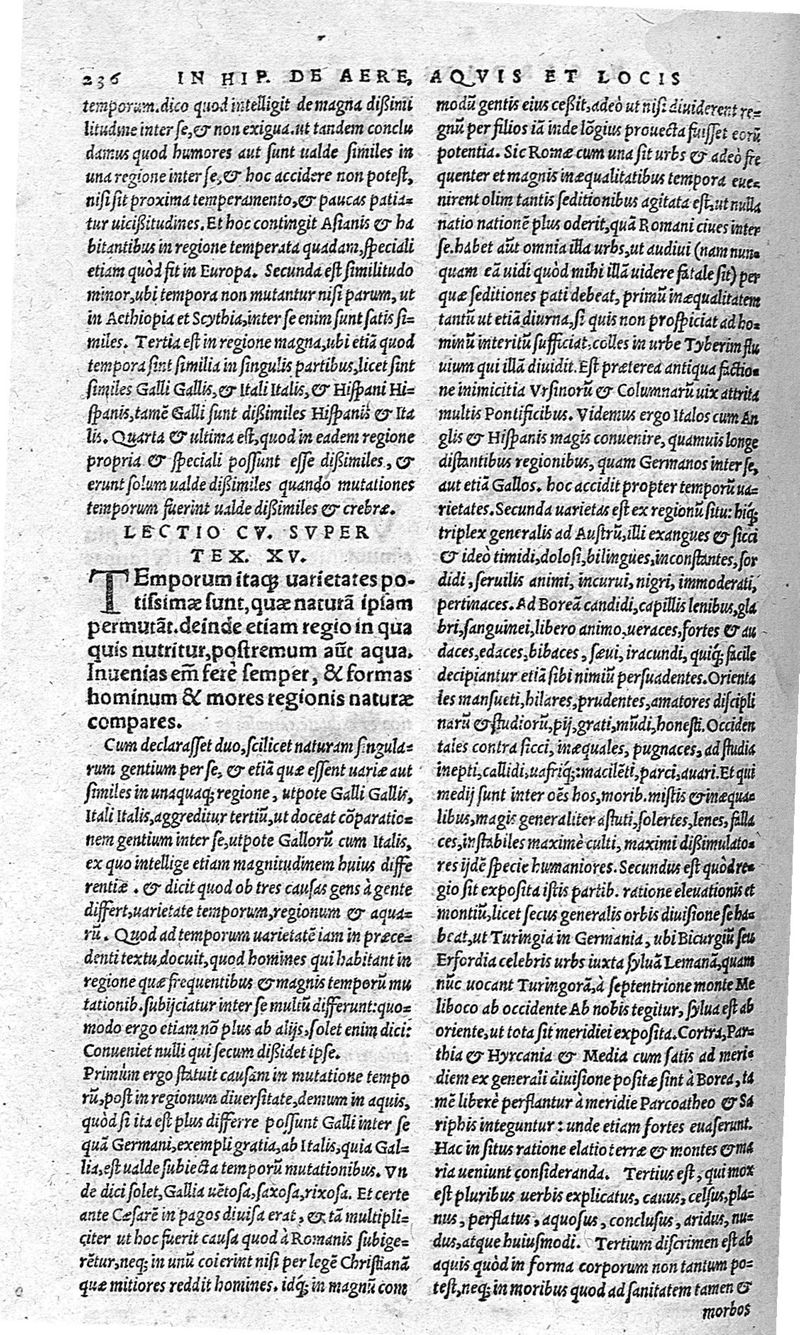 236 IN HIP. DE AERE, AQVIS ET LOCIS
temporum. dico quod intelligit de magna dißimi
litudine inter se, & non exigua. ut tandem conclu
damus quod humores aut sunt ualde similes in
una regione inter se, & hoc accidere non potest,
nisi sit proxima temperamento, & paucas patia=
tur uicißitudines. Et hoc contingit Asianis & ha
bitantibus in regione temperata quadam, speciali
etiam quòd sit in Europa. Secunda est similitudo
minor, ubi tempora non mutantur nisi parum, ut
in Aethiopia et Scythia, inter se enim sunt satis si=
miles. Tertia est in regione magna, ubi etiā quod
tempora sint similia in singulis partibus, licet sint
similes Galli Gallis, & Itali Italis, & Hispani Hi=
spanis, tamē Galli sunt dißimiles Hispanis & Ita
lis. Quarta & ultima est, quod in eadem regione
propria & speciali possunt esse dißimiles, &
erunt solum ualde dißimiles quando mutationes
temporum fuerint ualde dißimiles & crebræ.
LECTIO CV. SVPER
TEX. XV.
TEmporum itaq; uarietates po-
tissimæ sunt, quæ naturā ipsam
permutāt. deinde etiam regio in qua
quis nutritur, postremum aūt aqua.
Inuenias em̄ ferè semper, & formas
hominum & mores regionis naturæ
compares.
Cum declarasset duo, scilicet naturam singula=
rum gentium per se, & etiā quæ essent uariæ aut
similes in unaquaq; regione, utpote Galli Gallis,
Itali Italis, aggreditur tertiū, ut doceat cōparatio=
nem gentium inter se, utpote Gallorū cum Italis,
ex quo intellige etiam magnitudinem huius diffe
rentiæ. & dicit quod ob tres causas gens à gente
differt, uarietate temporum, regionum & aqua=
rū. Quod ad temporum uarietatē iam in præce=
denti textu docuit, quod homines qui habitant in
regione quæ frequentibus & magnis temporū mu
tationib. subijciatur inter se multū differunt: quo=
modo ergo etiam nō plus ab alijs, solet enim dici:
Conueniet nulli qui secum dißidet ipse.
Primùm ergo statuit causam in mutatione tempo
rū, post in regionum diuersitate, demum in aquis,
quòd si ita est plus differre possunt Galli inter se
quā Germani, exempli gratia, ab Italis, quia Gal=
lia, est ualde subiecta temporū mutationibus. Vn
de dici solet, Gallia uētosa, saxosa, rixosa. Et certe
ante Cæsarē in pagos diuisa erat, & tā multipli=
citer ut hoc fuerit causa quod à Romanis subige=
rētur, neq; in unū coierint nisi per legē Christianā
quæ mitiores reddit homines. idq; in magnū com
modū gentis eius ceßit, adeò ut nisi diuiderent re=
gnū per filios iā inde lōgius prouecta fuisset eorū
potentia. Sic Romæ cum una sit urbs & adeò fre
quenter et magnis inæqualitatibus tempora eue=
nirent olim tantis seditionibus agitata est, ut nulla
natio nationē plus oderit, quā Romani ciues inter
se. habet aūt omnia illa urbs, ut audiui (nam nun=
quam eā uidi quòd mihi illā uidere fatale sit) per
quæ seditiones pati debeat, primū inæqualitatem
tantū ut etiā diurna, si quis non prospiciat ad ho=
minū interitū sufficiat. colles in urbe Tyberim flu
uium qui illā diuidit. Est præterea antiqua factio=
ne inimicitia Vrsinorū & Columnarū uix attrita
multis Pontificibus. Videmus ergo Italos cum An
glis & Hispanis magis conuenire, quamuis longe
distantibus regionibus, quam Germanos inter se,
aut etiā Gallos. hoc accidit propter temporū ua=
rietates. Secunda uarietas est ex regionū situ: hiq;
triplex generalis ad Austrū, illi exangues & sicci
& ideò timidi, dolosi, bilingues, inconstantes, sor
didi, seruilis animi, incurui, nigri, immoderati,
pertinaces. Ad Boreā candidi, capillis lenibus, gla
bri, sanguinei, libero animo, ueraces, fortes & au
daces, edaces, bibaces, sæui, iracundi, quiq; facile
decipiantur etiā sibi nimiū persuadentes. Orienta
les mansueti, hilares, prudentes, amatores discipli
narū & studiorū, pij, grati, mūdi, honesti. Occiden
tales contra sicci, inæquales, pugnaces, ad studia
inepti, callidi, uafriq;: macilēti, parci, auari. Et qui
medij sunt inter oēs hos, morib. mistis & inæqua=
libus, magis generaliter astuti, solertes, lenes, falla
ces, instabiles maximè culti, maximi dißimulato=
res ijdē specie humaniores. Secundus est quòd re=
gio sit exposita istis partib. ratione eleuationis et
montiū, licet secus generalis orbis diuisione se ha=
beat, ut Turingia in Germania, ubi Bicurgiū seu
Erfordia celebris urbs iuxta syluā Lemanā, quam
nūc uocant Turingorā, à septentrione monte Me
liboco ab occidente Ab nobis tegitur, sylua est ab
oriente, ut tota sit meridiei exposita. Cōtra, Par=
thia & Hyrcania & Media cum satis ad meri=
diem ex generali diuisione positæ sint à Borea, ta
mē liberè perflantur à meridie Parcoatheo & Sa
riphis integuntur: unde etiam fortes euaserunt.
Hac in situs ratione elatio terræ & montes & ma
ria ueniunt consideranda. Tertius est, qui mox
est pluribus uerbis explicatus, cauus, celsus, pla=
nus, perflatus, aquosus, conclusus, aridus, nu=
dus, atque huiusmodi. Tertium discrimen est ab
aquis quòd in forma corporum non tantum po=
test, neq; in moribus quod ad sanitatem tamen &
morbos